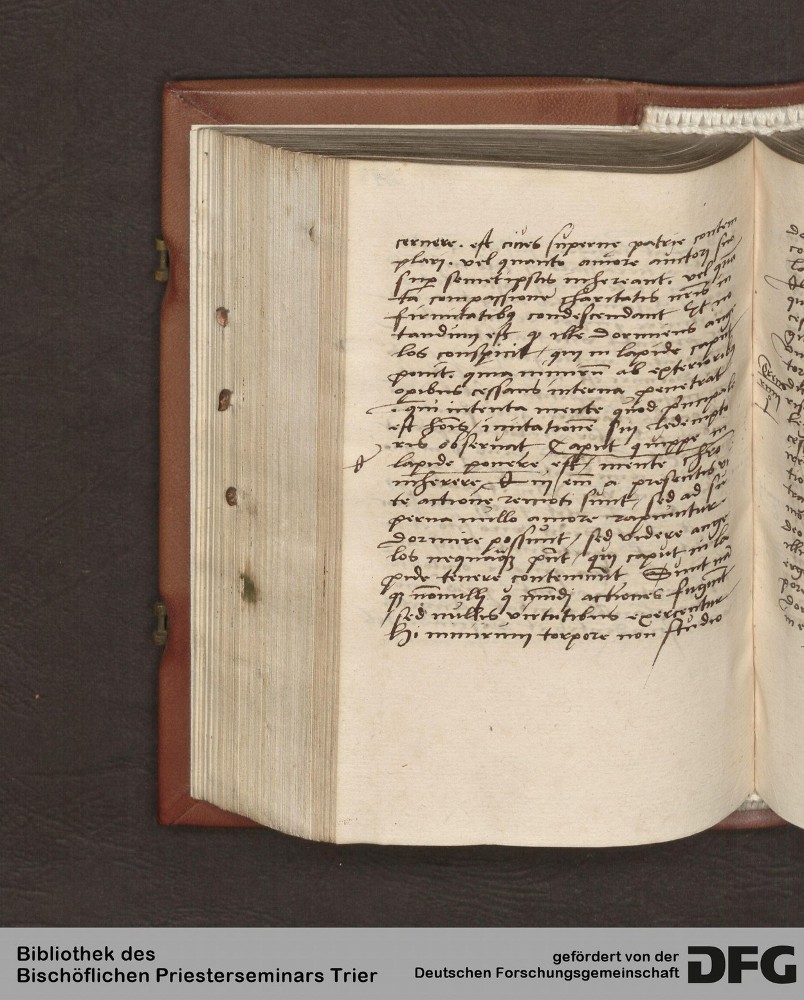 cernere. est ciues superne patrie contem
plari. vel quanto amore auctori suo
sup semetipsis inhereant. vel quā
ta compassione charitatis nr̄is in
firmitatibꝫ condescendant Et no
tandum est ꝙ ille dormiens ange
los conspicit / qui in lapide caput
ponit. quia nimirū ab exterioribꝫ
opibus cessans interna penetrat
. qui intenta mente quod principale
est hōis / imitationē sui redempto
ris obseruat Caput quippe in
lapide ponere est / mente Chro
inherere. Qui em̄ a presentis vi
te actione remoti sunt / sed ad su
perna nullo amore rapiuntur
dormire possunt / sed videre ange
los nequaqꝫ pn̄t / qui caput in la
pide tenere contemnūt. Sunt nā
qꝫ nōnulli q̇ mūdi actiones fugiūt
sed nullis virtutibus exercentur
hi nimirum torpore non studio
Bibliothek des
Bischöflichen Priesterseminars Trier
gefördert von der
Deutschen Forschungsgemeinschaft
DFG